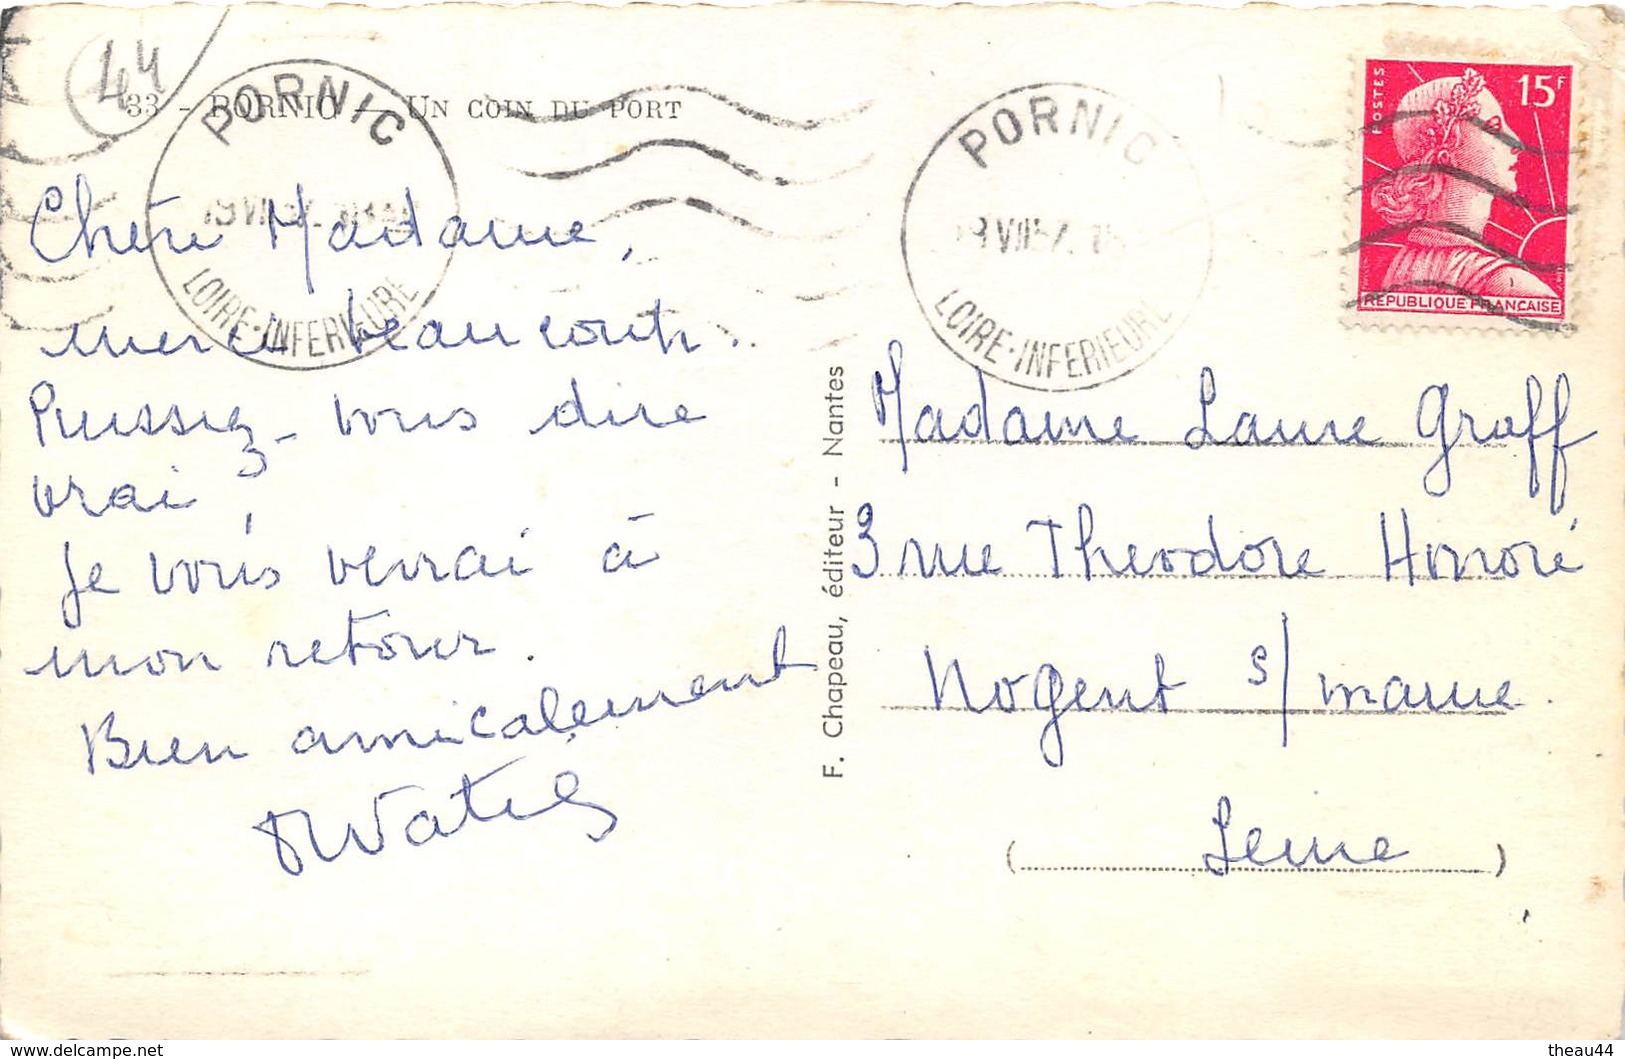 44
33 - PORNIC — UN COIN DU PORT
PORNIC
LOIRE-INFERIEURE
Chère Madame,
merci beaucoup.
Puissiez-vous dire
vrai,
Je vous verrai à
mon retour.
Bien amicalement
F. Chapeau, éditeur - Nantes
PORNIC
LOIRE-INFERIEURE
POSTES
15F
REPUBLIQUE FRANÇAISE
Madame Laure Graff
3 rue Theodore Honoré
Nogent s/ marne.
( Seine )
delcampe.net
theau44